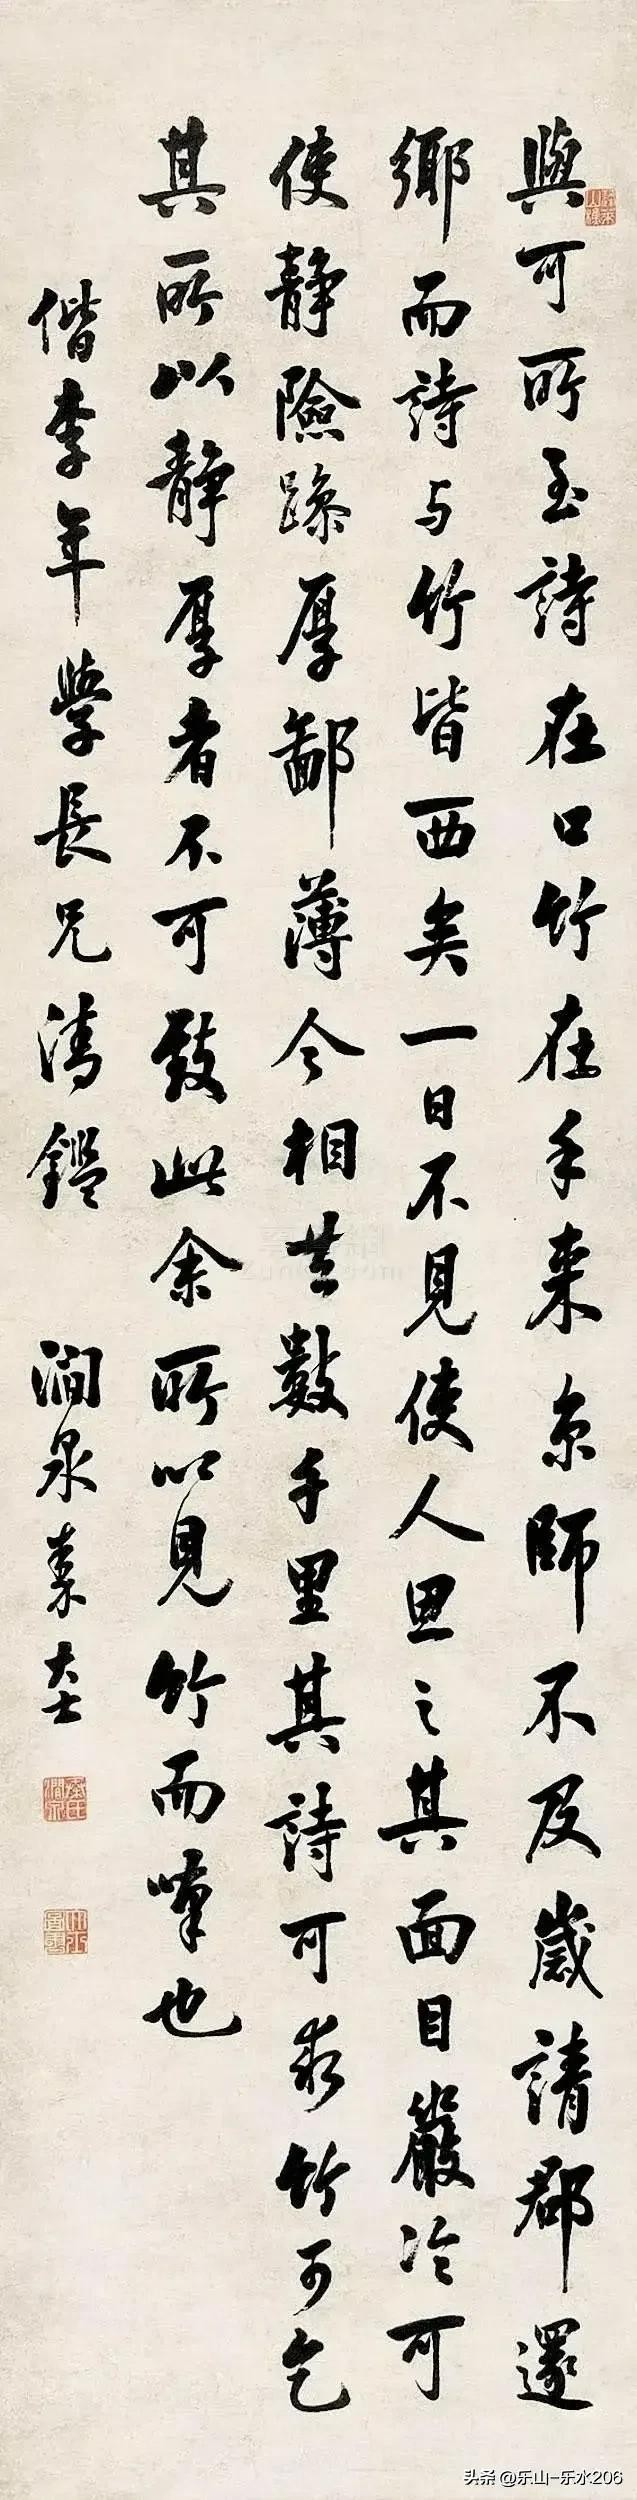 與可所至詩在口竹在手来京師不及歲請郡還
鄉而詩与竹皆西矣一日不見使人思之其面目嚴冷可
使靜險躁厚鄙薄今相去數千里其詩可求竹可乞
其所以靜厚者不可致此余所以見竹而嘆也
偕李年學長兄清鑑
澗泉秦大士
头条@乐山-乐水206